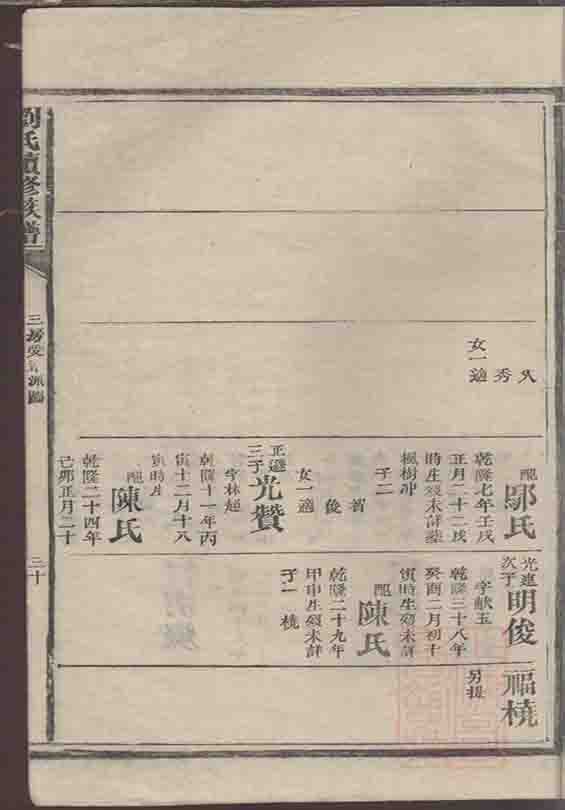 秀
女一適
配
氏
乾隆七年壬戌
正月二十二戌
時生歿未詳葬
楓樹冲
子二
俊
女一適
正遜
三子
光贊
字林超
乾隆十一年丙
寅十二月十八
寅時生
配
陳氏
乾隆二十四年
己卯正月二十
次子
明俊
字献玉
乾隆三十八年
癸酉二月初十
寅時生歿未詳
配
陳氏
乾隆二十九年
甲申生歿未詳
子一 橈
福橈
另提
劉氏續修族譜
三房受 派圖
三十